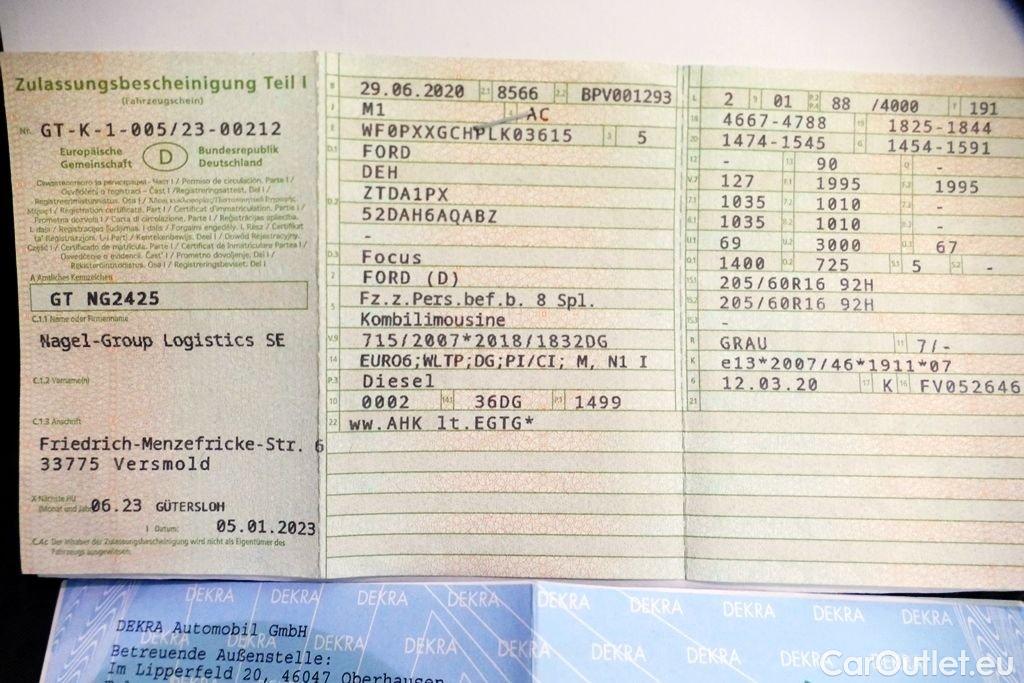 Zulassungsbescheinigung Teil I
(Fahrzeugschein)
Nr. GT-K-1-005/23-00212
Europäische Gemeinschaft D Bundesrepublik Deutschland
A Amtliches Kennzeichen
GT NG2425
C.1.1 Name oder Firmenname
Nagel-Group Logistics SE
C.1.2 Vorname(n)
C.1.3 Anschrift
Friedrich-Menzefricke-Str. 6
33775 Versmold
X Nächste HU (Monat und Jahr) 06.23 GÜTERSLOH
I Datum: 05.01.2023
C.4c Der Inhaber der Zulassungsbescheinigung wird nicht als Eigentümer des
Fahrzeugs ausgewiesen.
B 29.06.2020 2.1 8566 2.2 BPV001293
J M1 4 AC
E WF0PXXGCHPLK03615 3 5
D.1 FORD
DEH
D.2 ZTDA1PX
52DAH6AQABZ
-
D.3 Focus
2 FORD (D)
5 Fz.z.Pers.bef.b. 8 Spl.
Kombilimousine
V.9 715/2007*2018/1832DG
14 EURO6;WLTP;DG;PI/CI; M, N1 I
P.3 Diesel
10 0002 14.1 36DG P.1 1499
22 ww.AHK lt.EGTG*
L 2 9 01 P.2 P.4 88 /4000 T 191
18 4667-4788 19 1825-1844
20 1474-1545 G 1454-1591
12 - 13 90 Q -
V.7 127 F.1 1995 F.2 1995
7.1 1035 7.2 1010 7.3 -
8.1 1035 8.2 1010 8.3 -
U.1 69 U.2 3000 U.3 67
O.1 1400 O.2 725 S.1 5 S.2 -
15.1 205/60R16 92H
15.2 205/60R16 92H
15.3 -
R GRAU 11 7/-
K e13*2007/46*1911*07
6 12.03.20 17 K 16 FV052646
21
DEKRA DEKRA DEKRA DEKRA DEKRA DEKRA DEKRA DEKRA DEKRA
DEKRA Automobil GmbH
Betreuende Außenstelle:
Im Lipperfeld 20, 46047 Oberhausen
CarOutlet.eu